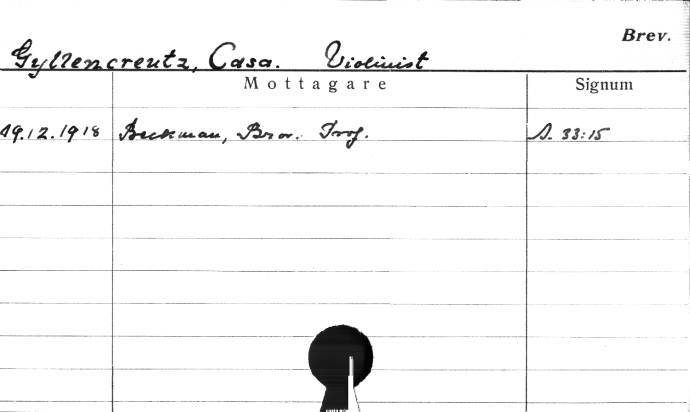 Brev.
Gyllencreutz, Casa. Violinist
Mottagare Signum
19.12.1918 Beckman, Bror. Prof. S. 33:15